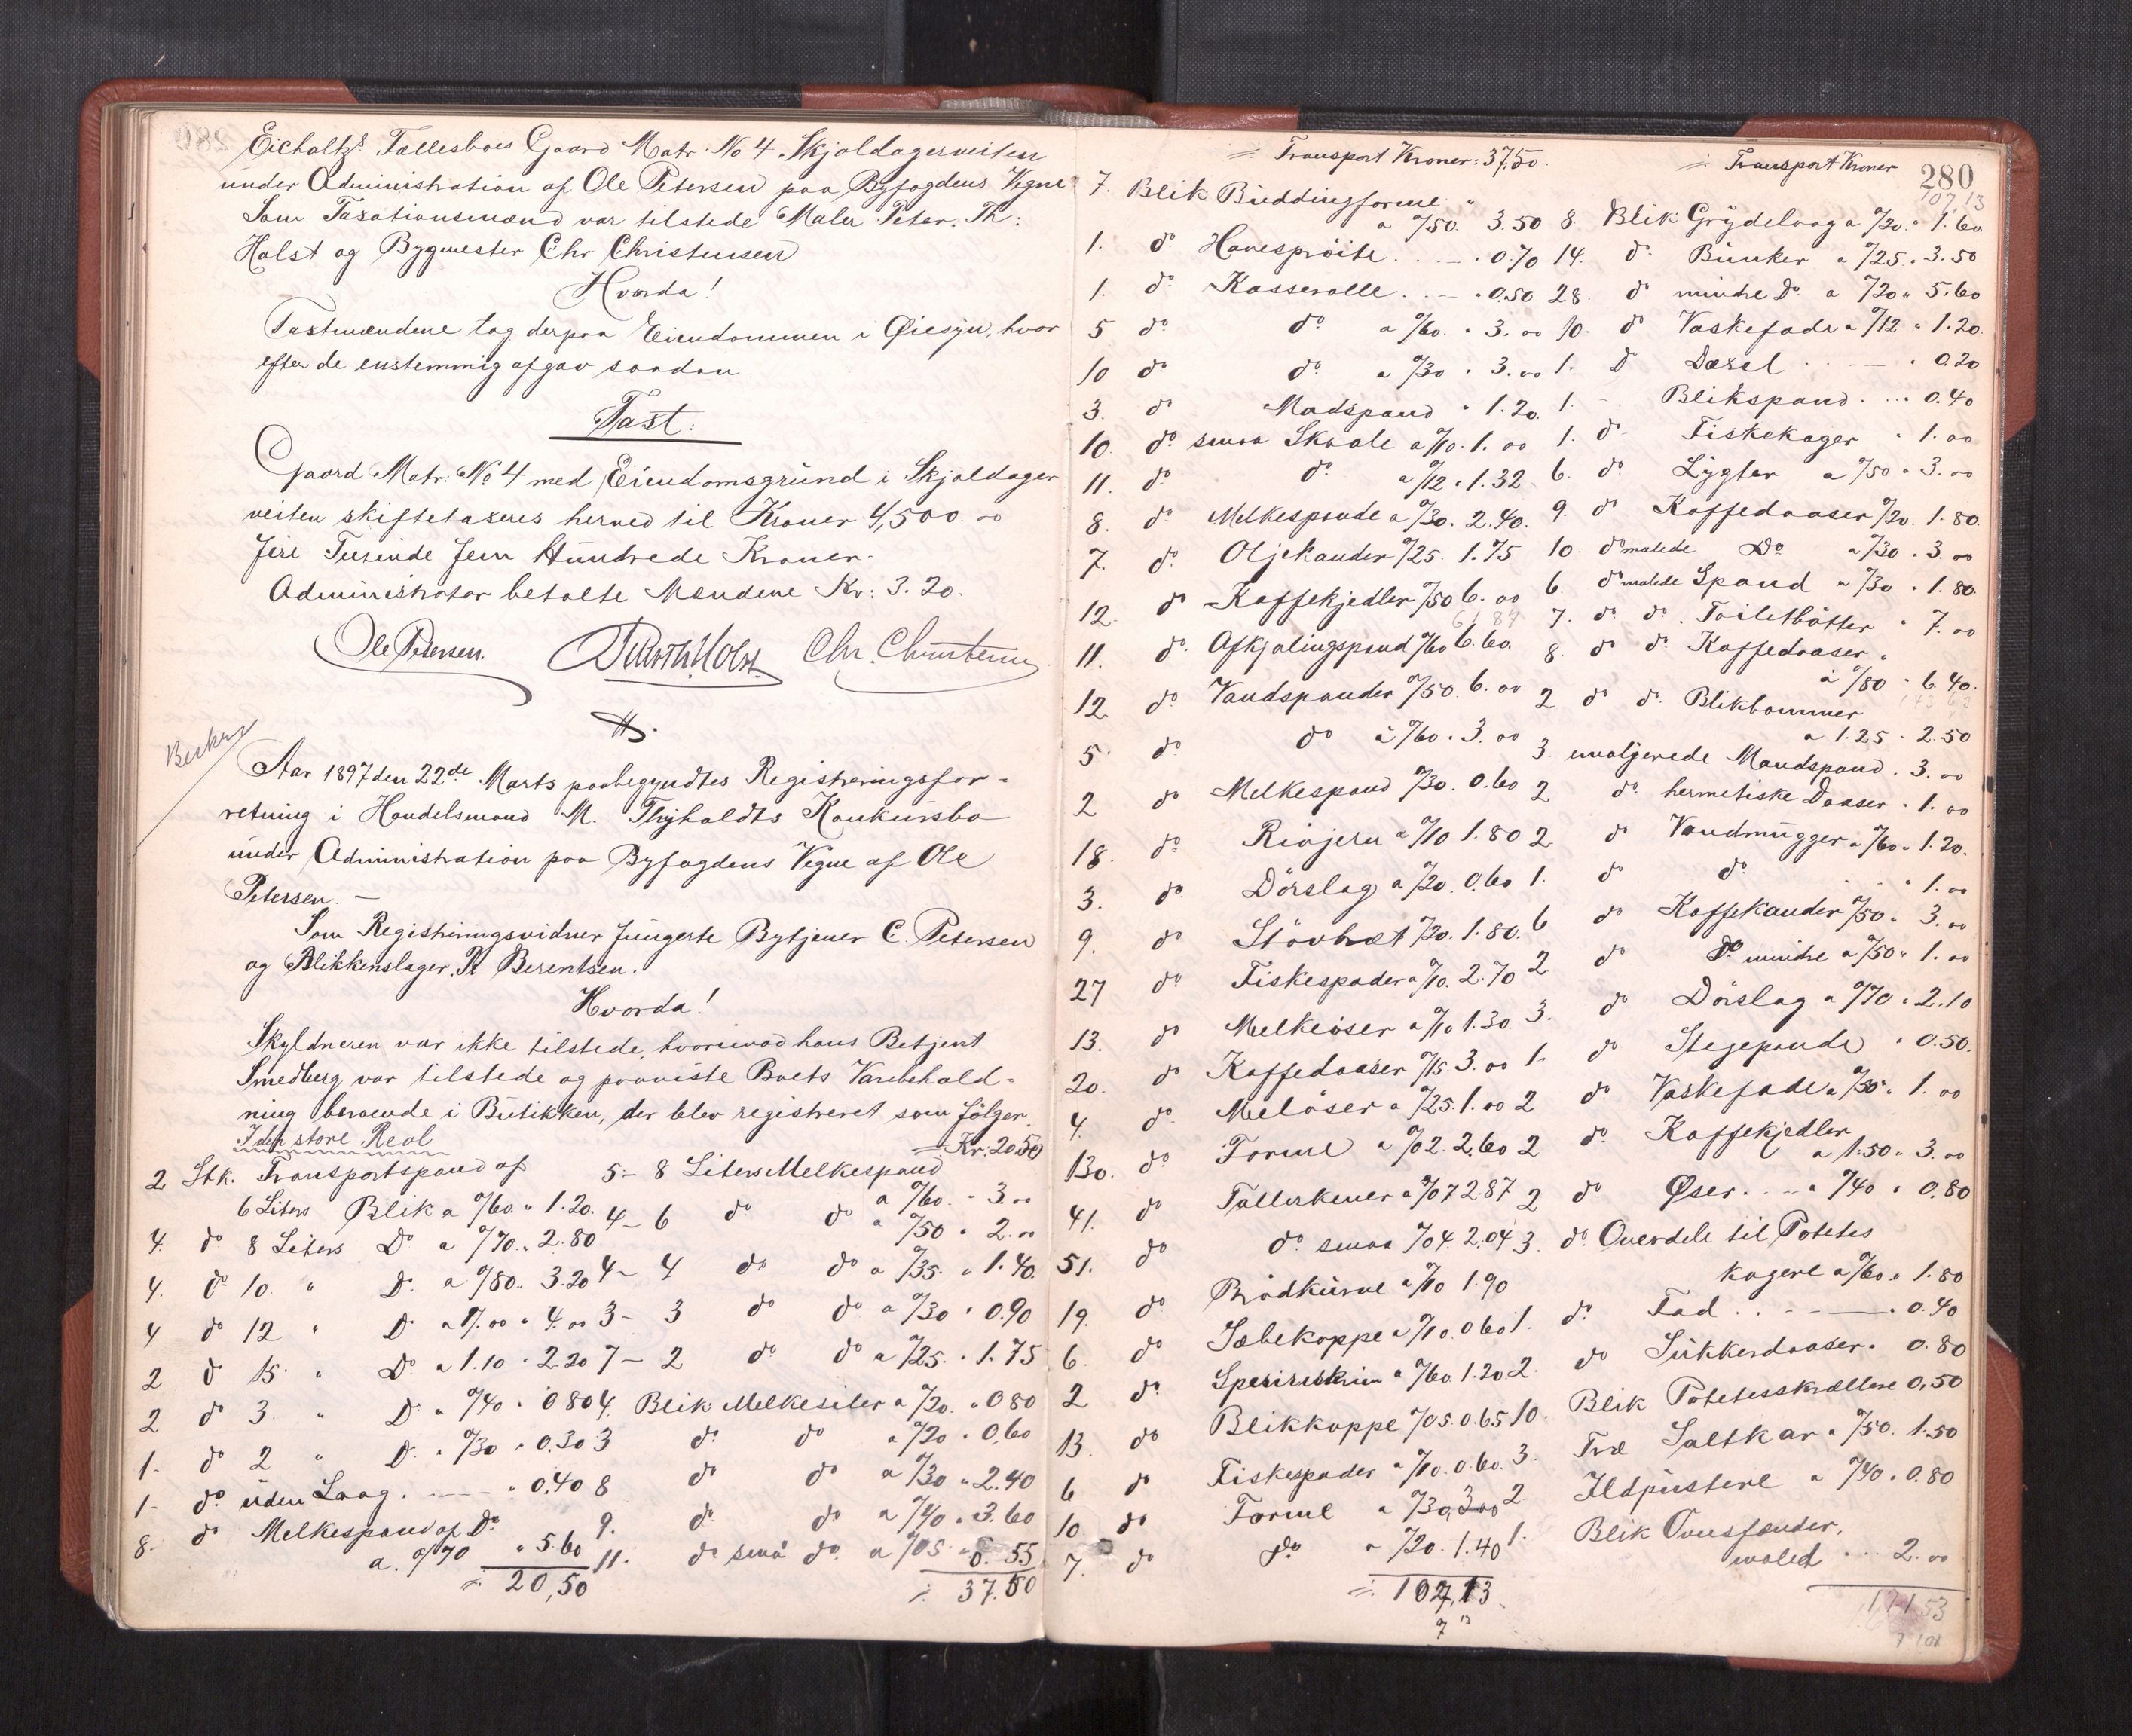 Eicholtz's Fællesboes Gaard Matr. No 4 Skjoldagerveiten
under Administration af Ole Petersen paa Byfogdens Vegne
Som Taxationsmænd var tilstede Maler Peter. Th:
Holst og Bygmester Chr Christensen
Hvorda!
Taxtmændene tog derpaa Eiendommen i Øiesyn, hvor
efter de enstemmig afgav saadan
Taxt:
Gaard Matr: No 4 med Eiendomsgrund i Skjoldager
veiten skiftetaxeres herved til Kroner 4,500.00
fire Tusinde fem Hundrede Kroner.
Administrator betalte Mændene Kr: 3.20.
Ole Petersen. P. Roth Holst. Chr. Christensen
Aar 1897 den 22de Marts paabegyndtes Registreringsfor=
retning i Handelsmand M. Thyholdts Konkursbo
under Administration paa Byfogdens Vegne af Ole
Petersen. —
Som Registreringsvidner fungerte Bytjener C. Petersen
og Blikkenslager. R Berentsen.
Hvorda!
Skyldneren var ikke tilstede, hvorimod hans Betjent
Smedberg var tilstede og paaviste Boets Varebehold=
ning beroende i Butikken, der blev registreret som følger.
I den store Reol
2 Stk. Transportspand af
6 Liters Blik a 0/60 " 1.20.
4. do 8 Liters Do a 0/70 " 2.80
4. do 10 " Do. a 0/80. 3.20
4 do 12 " Do a 1/.00 " 4.00
2 do 15. " Do. a 1.10 " 2.20
2 do 3. " Do. " 0/40 " 0.80
1- do 2 " Do. " 0/30 " 0.30
1- do uden Laag. - — " 0.40
8. do Melkespand af Do.
a. 0/70 " 5.60
=. 20,50
= Kr: 20.50
5 – 8 Liters Melkespand
a 0/60. - 3.00
4 – 6 do do a 0/50 " 2.00
4 – 4 do do a 0/35. " 1.40.
3 – 3 do do a 0/30 " 0.90
7 – 2 do do a 0/25. " 1.75
4. Blik Melkesiler a 0/20. " 0.80
3 do do a 0/20 " 0.60
8 do do a 0/30 " 2.40
9. do do a 0/40 " 3.60
11. do små do. a 0/05. " 0.55
=. 37.50
=. Transport Kroner: 37.50.
7. Blik Buddingforme
a 0/50. 3.50
1. do Havesprøite. . — . 0.70
1. do Kasserolle. . — . 0.50
5 do do a 0/60. " 3.00
10 do do a 0/30 " 3.00
3. do Madspand " 1.20.
10. do smaa Skaale a 0/10. 1.00
11. do do a 0/12 " 1.32
8. do Melkespande a 0/30. 2.40.
7. do. Oljekander 0/25. 1.75
12. do Kaffekjedler 0/50 6.00
11. do. Afkjølingspand 0/60 6.60.
12 do Vandspander 0/50. 6.00
5. do do a 0/60. 3.00
2 do Melkespand 0/30. 0.60
18. do. Rivjern a 0/10 1.80
3. do Dørslag a 0/20. 0.60
9. do Støvbræt 0/20. 1.80.
27 do Fiskespader a 0/10. 2.70
13. do Melkeøser a 0/10 1.30.
20. do Kaffedaaser 0/15. 3.00
4. do. Meløser a 0/25. 1.00
130. do Forme a 0/02. 2.60
41. do Tallerkener a 0/07 2.87
51. do do. smaa 0/04. 2.04
19. do Brødkurve a 0/10 1.90
6. do Sæbekoppe a 0/10. 0.60
2 do. Spesireskrin a 0/60. 1.20
13. do Blikkoppe 0/05. 0.65
6 do Fiskespader a 0/10. 0.60.
10 do Forme a 0/30, 3.00
7. do Do a 0/20. 1.40
=. 107,13
=. Transport Kroner
280
107,13
8 Blik Grydelaag a 0/20. " 1.60
14. do. Bunker a 0/25. " 3.50
28. do mindre Do. a 0/20 " 5.60
10. do Vaskefade a 0/12 " 1.20.
1. do Dørsel . . — . " 0.20
1. - Blikspand . . . . 0.40
1. do Fiskekoger " 1.00
6. do. Lygter a 0/50 " 3.00
9. do Kaffedaaser 0/20. 1.80.
10. do malede Do a 0/30 " 3.00
6. do malede Spand a 0/30 " 1.80.
7. do. do. Toiletbøtter " 7.00
8. do do Kaffedaaser.
a 0/80 " 6.40.
2 do do. Blikbommer
a 1.25 " 2.50
3 emaljerede Mandspand . 3.00
2 do. hermetiske Daaser " 1.00
2 do Vandmugger a 0/60 " 1.20.
1. do do. . . " 1.00
6 do Kaffekander 0/50 " 3.00
2 do Do mindre a 0/50 " 1.00
3. do Dørslag a 0/70 " 2.10
1. do Stegepande " 0.50.
2 do Vaskefade a 0/50 " 1.00
2 do. Kaffekjedler
a 1.50 " 3.00
2 do Øser. . . - a 0/40 " 0.80
3. do Overdele til Potetes
kogere a 0/60 " 1.80
1. do. Fad . . — . 0.40
2. do Sukkerdaaser. 0.80
10. Blik Potetesskrællere 0,50
3. Træ Saltkar a 0/50. 1.50
2 Ildpustere a 0/40. 0.80
1. Blik Ovnsfander,
maled . . . 2.00
171.53